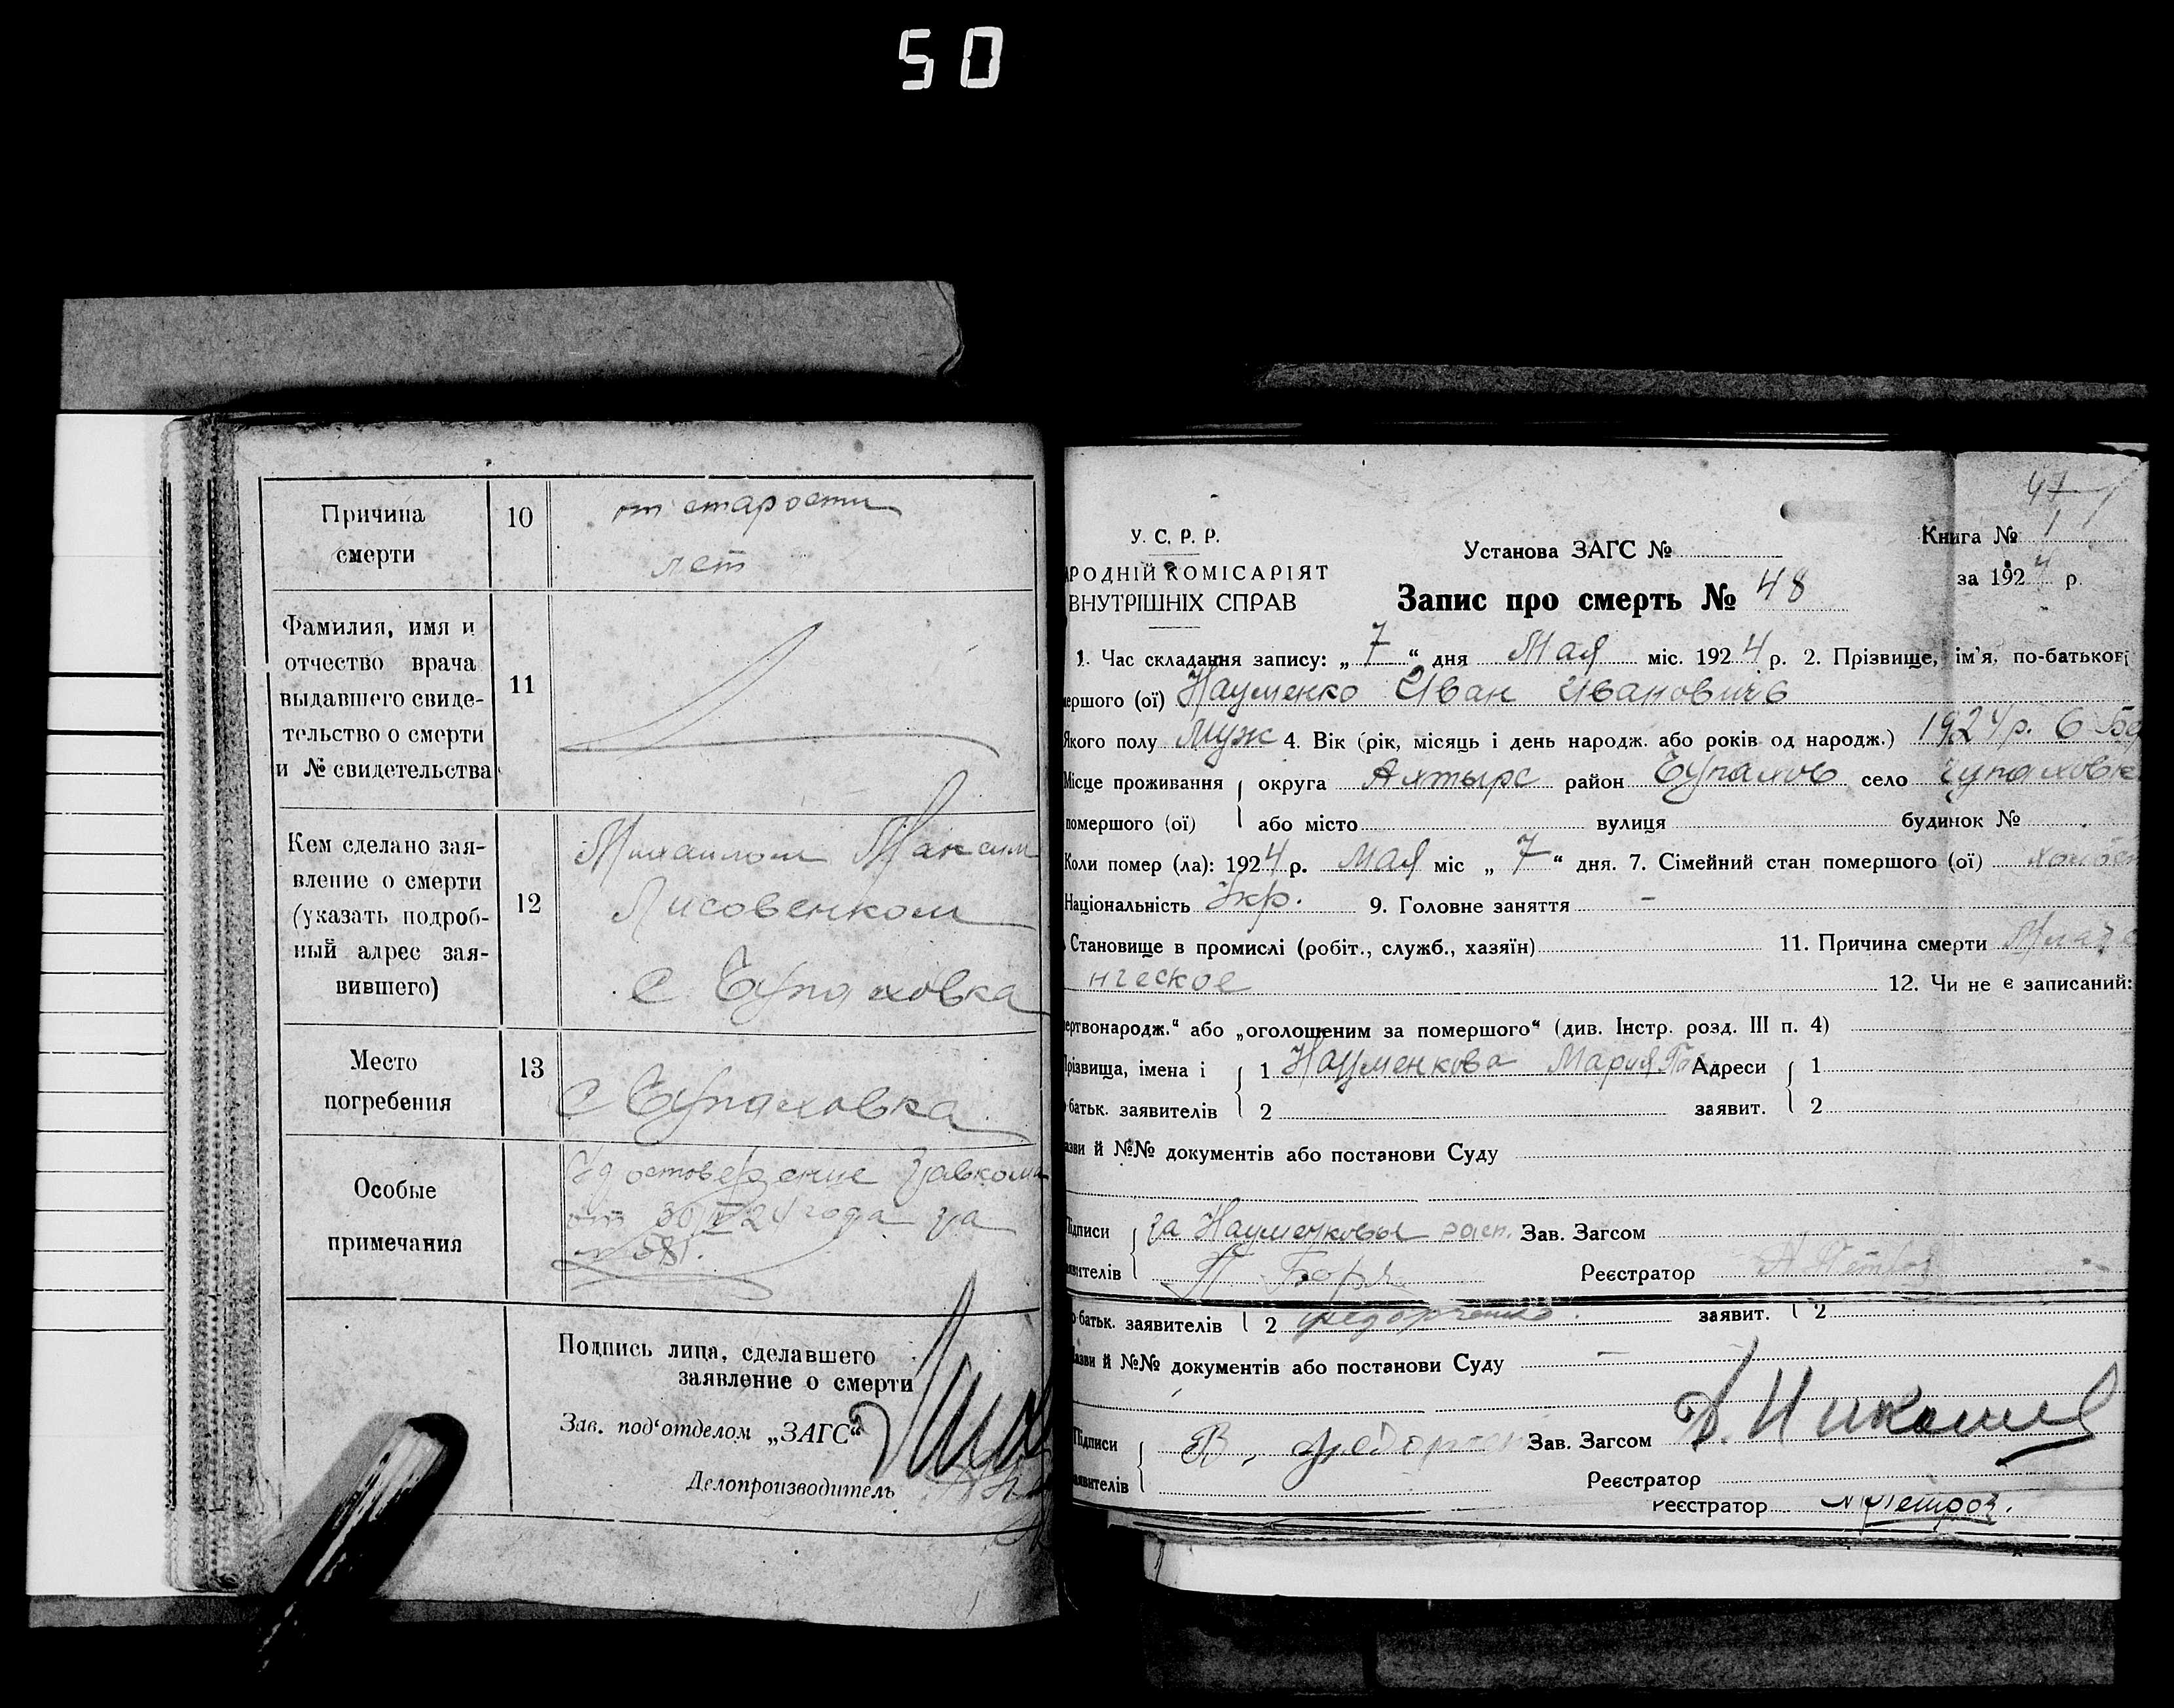 50
Причина
смерти
10
от старости
лет
Фамилия, имя и
отчество врача
выдавшего свиде-
тельство о смерти
и № свидетельства
11
Кем сделано зая-
вление о смерти
(указать подроб-
ный адрес зая-
вившего)
12
Михаилом Максим
Лисовенком
с. Чупаховка
Место
погребения
13
с Чупаховка
Особые
примечания
Удостоверение Завкома
от 30/IV 24 года за
Подпись лица, сделавшего
заявление о смерти
Зав. под'отделом „ЗАГС“
Делопроизводитель
47
У. С. Р. Р.
АРОДНІЙ КОМІСАРІЯТ
ВНУТРІШНІХ СПРАВ
Установа ЗАГС №
Книга № 1
за 1924 р.
Запис про смерть № 48
1. Час складання запису: „7“ дня Мая міс. 1924 р. 2. Прізвище, ім'я, по-батькові
мершого (ої) Науменко Иван Иванович
якого полу Муж 4. Вік (рік, місяць і день народж. або років од народж.) 1924 р. 6
Місце проживання округа Ахтырс район Чупахов село Чупаховк
помершого (ої) або місто вулиця будинок №
Коли помер (ла): 1924 р. Мая міс „7“ дня. 7. Сімейний стан помершого (ої)
Національність Укр. 9. Головне заняття -
Становище в промислі (робіт., служб., хазяїн) 11. Причина смерти Млад
нческое 12. Чи не є записаний:
ертвонародж.“ або „оголошеним за помершого“ (див. Інстр. розд. III п. 4)
Прізвища, імена і 1 Науменкова Мария Адреси 1
батьк. заявителів 2 заявит. 2
азви й №№ документів або постанови Суду
Підписи за Науменкову расп. Зав. Загсом
заявителів Реєстратор А Петров
батьк. заявителів 2 Федорченко заявит. 2
азви й №№ документів або постанови Суду —
Підписи В. Федорчен Зав. Загсом
заявителів Реєстратор
Реєстратор А Петров.